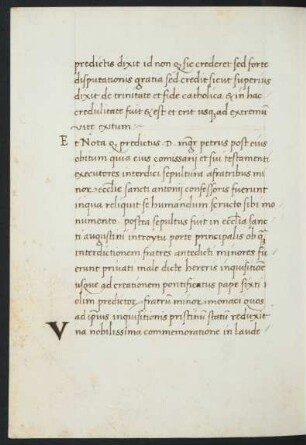 predictis dixit id non q̃ sic crederet sed forte
disputationis gratia sed credit sicut superius
dixit de trinitate et fide catholica & in hac
credulitate fuit & est et erit usq; ad extremũ
vitę exitum.
Et Nota q̃ predictus .D. mgr̃ petrus post eius
obitum quia eius comissarij et sui testamenti
executores interdicti sepultura a fratribus mi
nor. ecctie sancti antonij confessoris fuerunt
in qua reliquit se humandum scructo sibi mo
numento. postea sepultus fuit in ecctia sanc
ti augustini introytu porte principalis ob q̃
interdictionem fratres antedicti minores fu
erunt privati male dicte heresis inquisitiõe
usque ad creationem pontificatus pape sixti
olim predictor. fratrũ minor. monaci quos
ad ipsius inquisitionis pristinũ statũ reduxit
Vna nobilissima commemoratione in laude